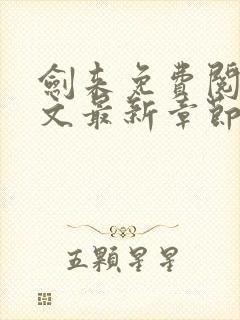 劍來免費閱
文最新章節
五顆星星